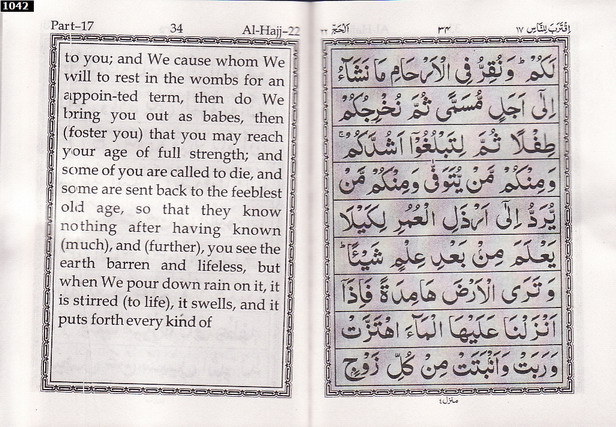 1042
Part-17 34 Al-Hajj-22
to you; and We cause whom We
will to rest in the wombs for an
appoin-ted term, then do We
bring you out as babes, then
(foster you) that you may reach
your age of full strength; and
some of you are called to die, and
some are sent back to the feeblest
old age, so that they know
nothing after having known
(much), and (further), you see the
earth barren and lifeless, but
when We pour down rain on it, it
is stirred (to life), it swells, and it
puts forth every kind of
اقترب للناس ١٧ ٣٤ الحج ٢٢
لَكُمْ ؕ وَنُقِرُّ فِی الْاَرْحَامِ مَا نَشَآءُ
اِلٰۤی اَجَلٍ مُّسَمًّی ثُمَّ نُخْرِجُكُمْ
طِفْلًا ثُمَّ لِتَبْلُغُوْۤا اَشُدَّكُمْ ۚ
وَمِنْكُمْ مَّنْ یُّتَوَفّٰی وَمِنْكُمْ مَّنْ
یُّرَدُّ اِلٰۤی اَرْذَلِ الْعُمُرِ لِكَیْلَا
یَعْلَمَ مِنْۢ بَعْدِ عِلْمٍ شَیْئًا ؕ
وَتَرَی الْاَرْضَ هَامِدَةً فَاِذَاۤ
اَنْزَلْنَا عَلَیْهَا الْمَآءَ اهْتَزَّتْ
وَرَبَتْ وَاَنْۢبَتَتْ مِنْ كُلِّ زَوْجٍۭ
منزل ٤